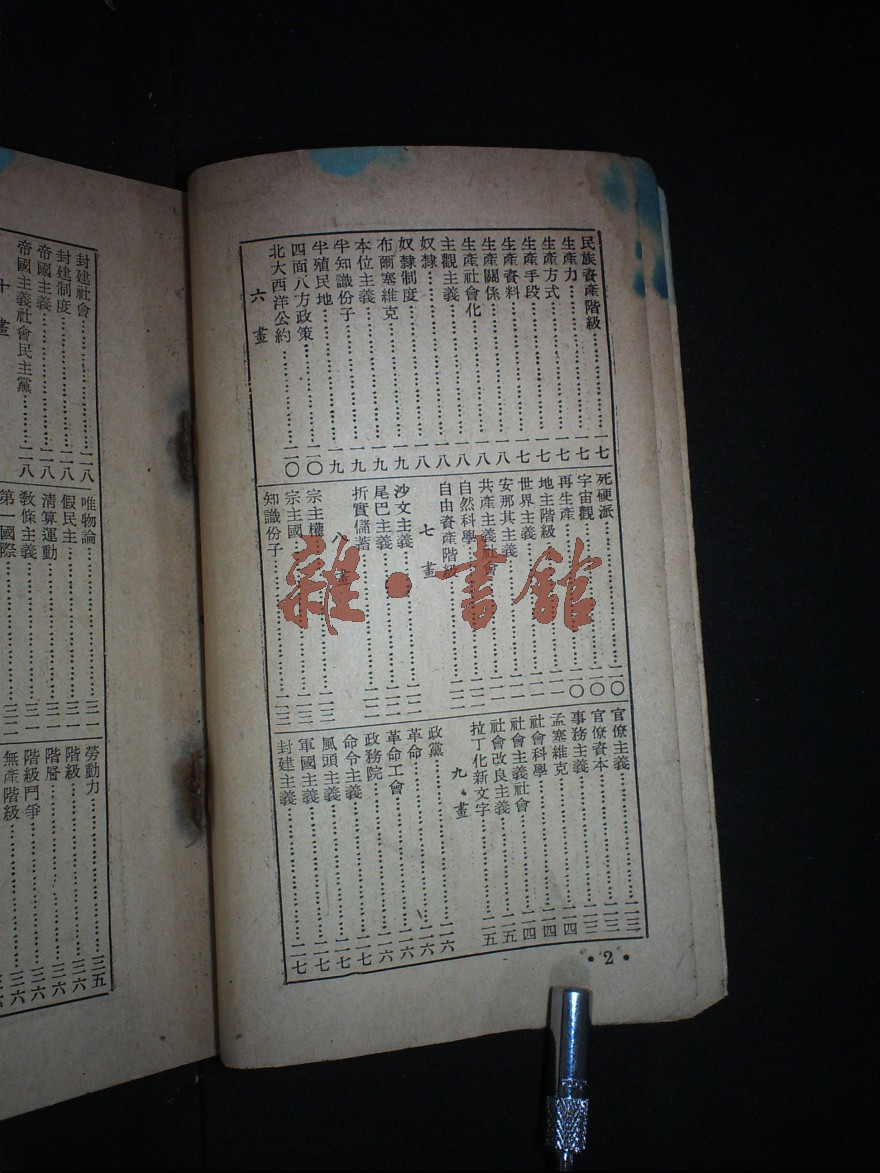 民族資產階級………一七
生產力………一七
生產方式………一七
生產手段………一七
生產資料………一七
生產關係………一八
生產社會化………一八
主觀主義………一八
奴隸………一八
奴隸制度………一八
布爾塞維克………一九
本位主義………一九
半知識份子………一九
半殖民地………一九
四面八方政策………二〇
北大西洋公約………二〇
六 畫
死硬派………二〇
宇宙觀………二〇
再生產………二〇
地主階級………二一
世界主義………二一
安那其主義………二一
共產主義社會………二一
自然科學………二二
自由資產階級………二二
七 畫
沙文主義………二二
尾巴主義………二二
折實儲蓄………二二
八 畫
宗主權………二三
宗主國………二三
知識份子………二三
官僚主義………二三
官僚資本………二三
事務主義………二三
孟塞維克………二四
社會科學………二四
社會主義社會………二四
社會改良主義………二五
拉丁化新文字………二五
九 畫
政黨………二六
革命………二六
革命工會………二六
政務院………二六
命令主義………二七
風頭主義………二七
軍國主義………二七
封建主義………二七
• 2 •
封建社會………二八
封建制度………二八
帝國主義………二八
帝國主義社會民主黨………二八
十 畫
唯物論………三一
假民主………三一
清算運動………三一
教條主義………三一
第一國際………三二
勞動力………三五
階級………三六
階層………三六
階級鬥爭………三六
無產階級
雜·書館